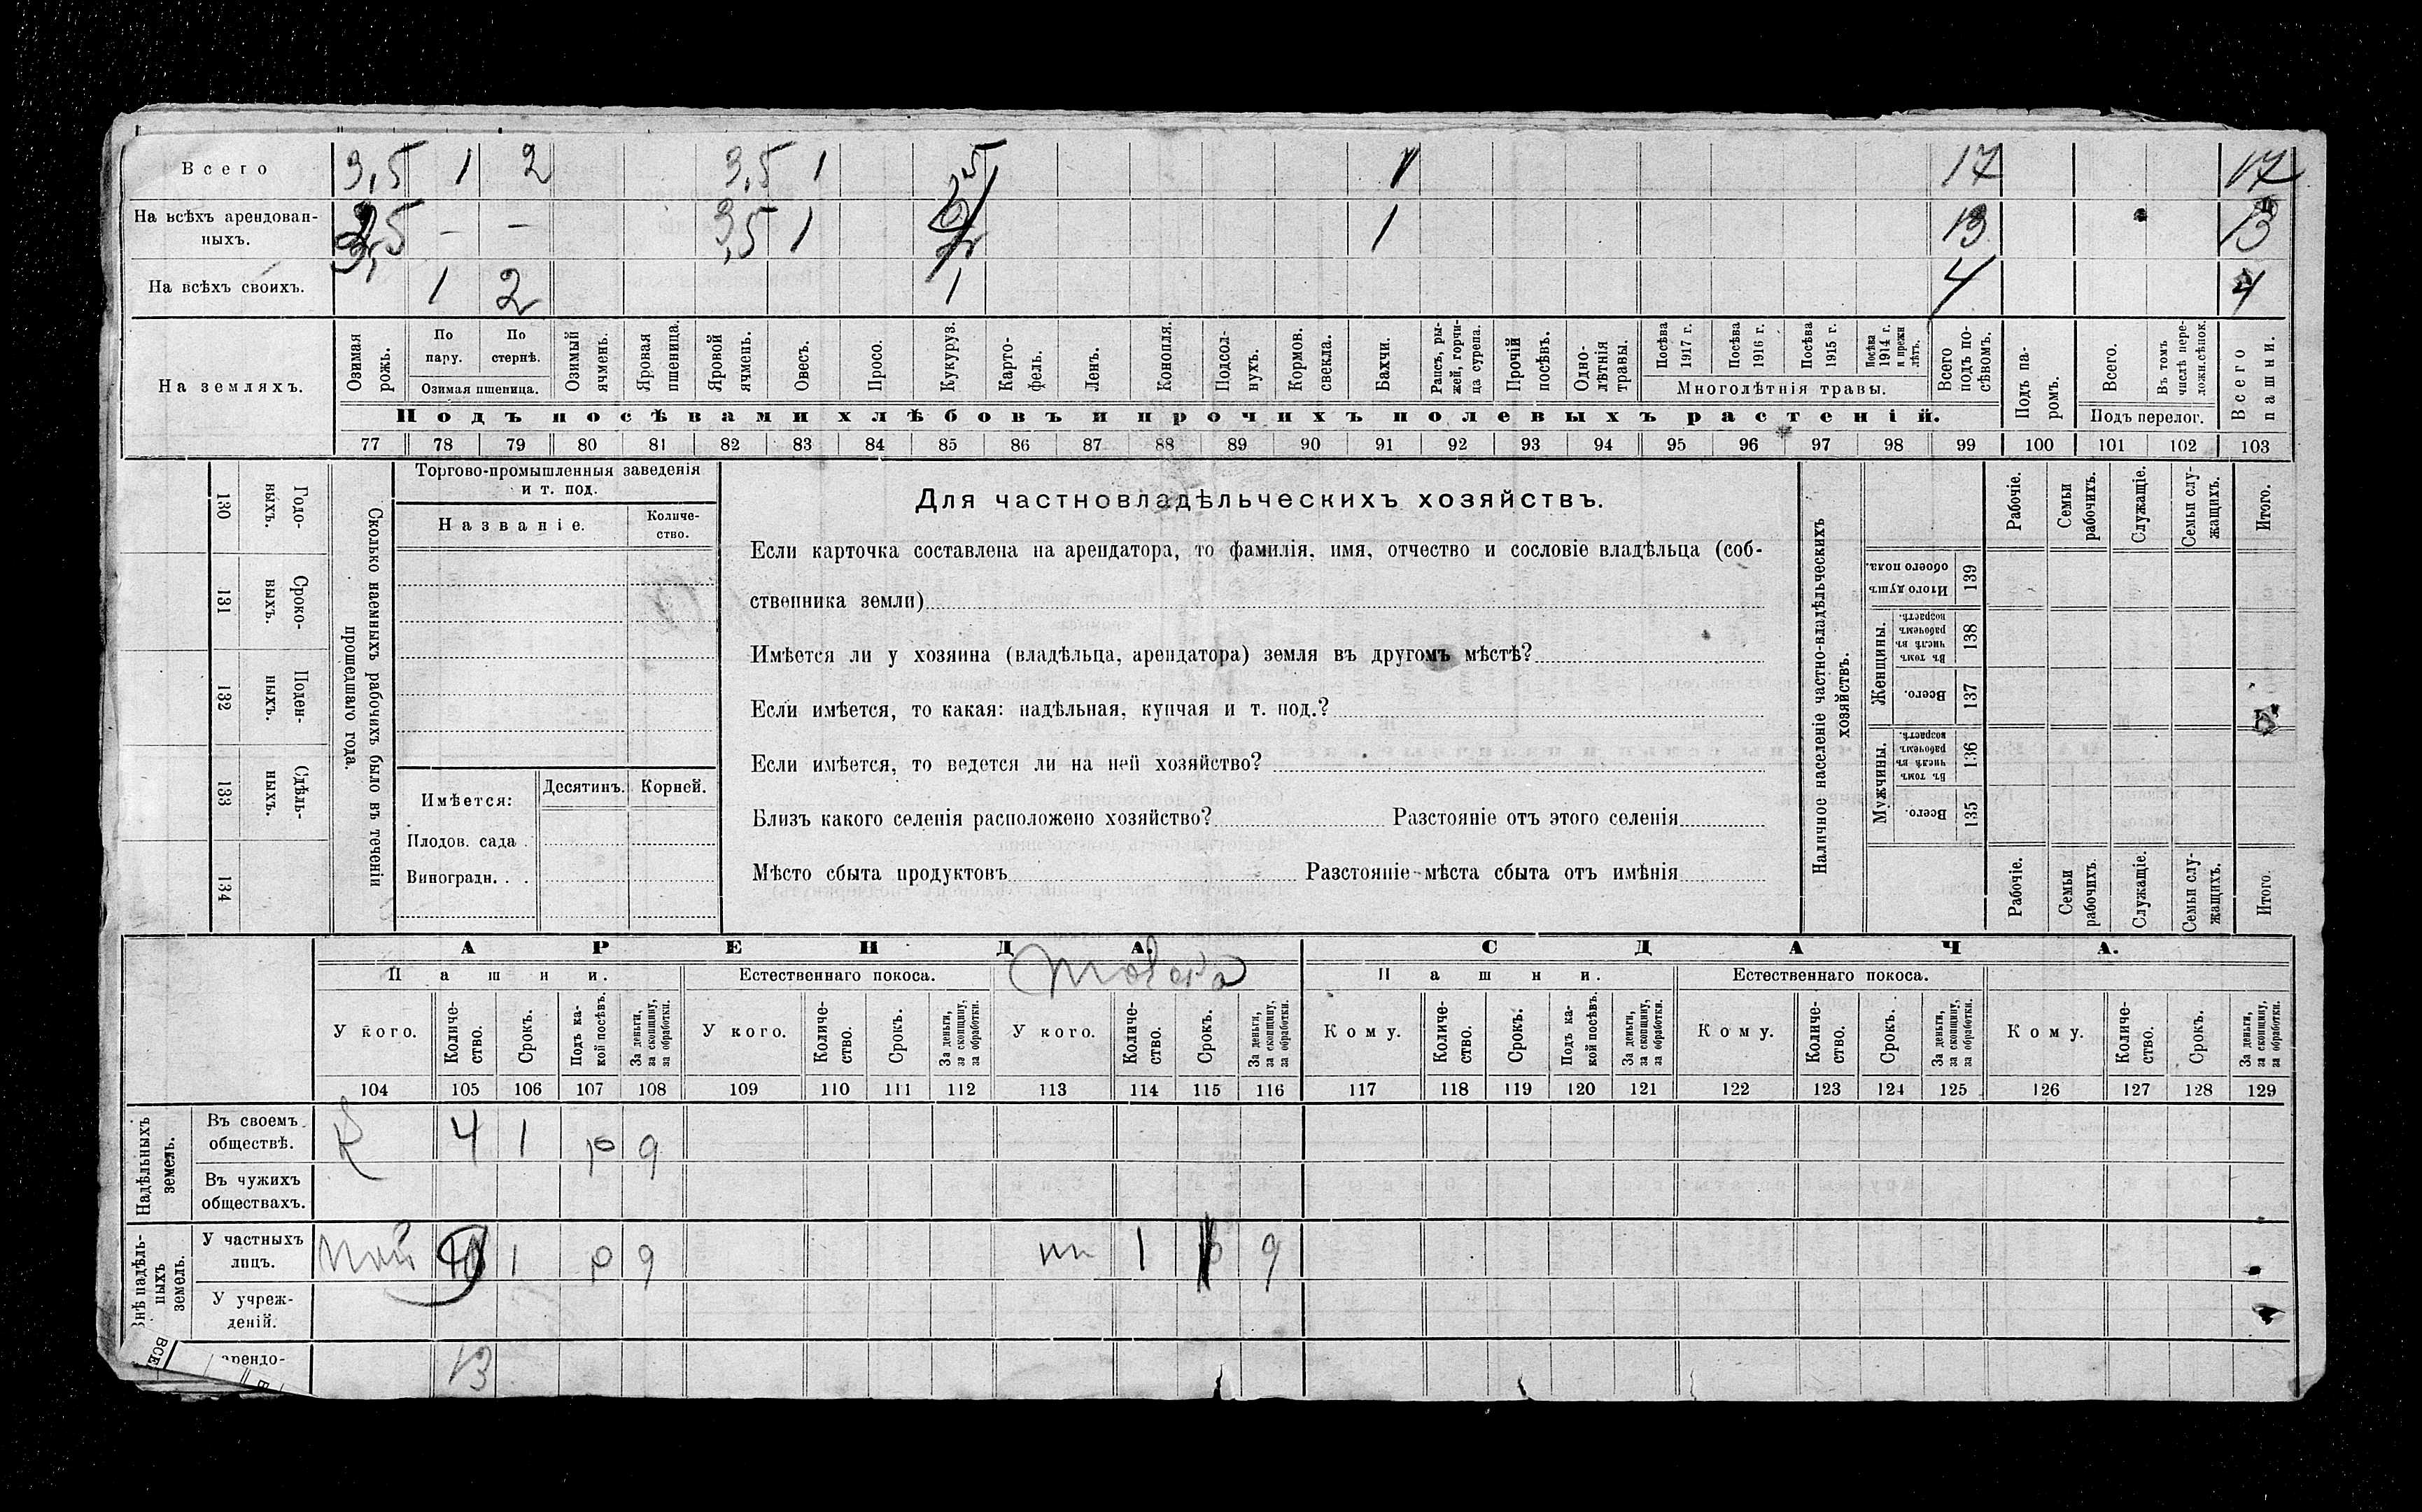 Всего 3,5 1 2 3,5 1 5 1 17 17
На всѣхъ арендован-
ныхъ. 5 – – 3,5 1 1 13 13
На всѣхъ своихъ. 1 2 1 4 4
На земляхъ.
Озимая рожь.
По пару.
По стернѣ.
Озимая пшеница.
Озимый ячмень.
Яровая пшеница.
Яровой ячмень.
Овесъ.
Просо.
Кукуруз.
Карто-
фель.
Ленъ.
Конопля.
Подсол-
нухъ.
Кормов. свекла.
Бахчи.
Рапсъ, ры-
жей, горчи-
ца сурепа.
Прочій посѣвъ.
Одно-
лѣтнія травы.
Посѣва 1917 г.
Посѣва 1916 г.
Посѣва 1915 г.
Посѣва 1914 г. и прежн лѣтъ.
Многолѣтнія травы.
Всего подъ по-
сѣвомъ.
Подъ па-
ромъ.
Всего.
Въ томъ числѣ пере-
ложн.сѣнок.
Подъ перелог.
Всего пашни.
Подъ посѣвами хлѣбовъ и прочихъ полевыхъ растеній.
77 78 79 80 81 82 83 84 85 86 87 88 89 90 91 92 93 94 95 96 97 98 99 100 101 102 103
130 Годо-
выхъ.
131 Сроко-
выхъ.
132 Поден-
ныхъ.
133 Сдѣль-
ныхъ.
134
Сколько наемныхъ рабочихъ было въ теченіи
прошедшаго года.
Торгово-промышленныя заведенія
и т. под.
Названіе.
Количе-
ство.
Имѣется:
Десятинъ.
Корней.
Плодов. сада .
Виноградн. . .
Для частновладѣльческихъ хозяйствъ.
Если карточка составлена на арендатора, то фамилія, имя, отчество и сословіе владѣльца (соб-
ственника земли)
Имѣется ли у хозяина (владѣльца, арендатора) земля въ другомъ мѣстѣ?
Если имѣется, то какая: надѣльная, купчая и т. под.?
Если имѣется, то ведется ли на ней хозяйство?
Близъ какого селенія расположено хозяйство? Разстояніе отъ этого селенія
Мѣсто сбыта продуктовъ Разстояніе мѣста сбыта отъ имѣнія
Наличное населеніе частно-владѣльческихъ
хозяйствъ.
Рабочіе.
Семьи рабочихъ.
Служащіе.
Семьи слу-
жащихъ.
Итого.
Итого душъ обоего пола. 139
Женщины.
Въ томъ числѣ въ рабочемъ возрастѣ. 138
Всего. 137
Мужчины.
Въ томъ числѣ въ рабочемъ возрастѣ. 136
Всего. 135
Рабочіе.
Семьи рабочихъ
Служащіе.
Семьи слу-
жащихъ.
Итого.
АРЕНДА.
СДАЧА.
Пашни.
Естественнаго покоса.
Пашни.
Естественнаго покоса.
У кого.
Количе-
ство.
Срокъ.
Подъ ка-
кой посѣвъ.
За деньги, за скопщину, за обработки.
У кого.
Количе-
ство.
Срокъ.
За деньги, за скопщину, за обработки.
У кого.
Количе-
ство.
Срокъ.
За деньги, за скопщину, за обработки.
Кому.
Количе-
ство.
Срокъ.
Подъ ка-
кой посѣвъ.
За деньги, за скопщину, за обработки.
Кому.
Количе-
ство.
Срокъ.
За деньги, за скопщину, за обработки.
Кому.
Количе-
ство.
Срокъ.
За деньги, за скопщину, за обработки.
104 105 106 107 108 109 110 111 112 113 114 115 116 117 118 119 120 121 122 123 124 125 126 127 128 129
Надѣльныхъ
земель.
Въ своемъ
обществѣ. К 4 1 р д
Въ чужихъ
обществахъ.
Внѣ надѣль-
ныхъ
земель.
У частныхъ
лицъ. 1 р д 1 д
У учреж-
деній.
ВСЕ
арендо-
13